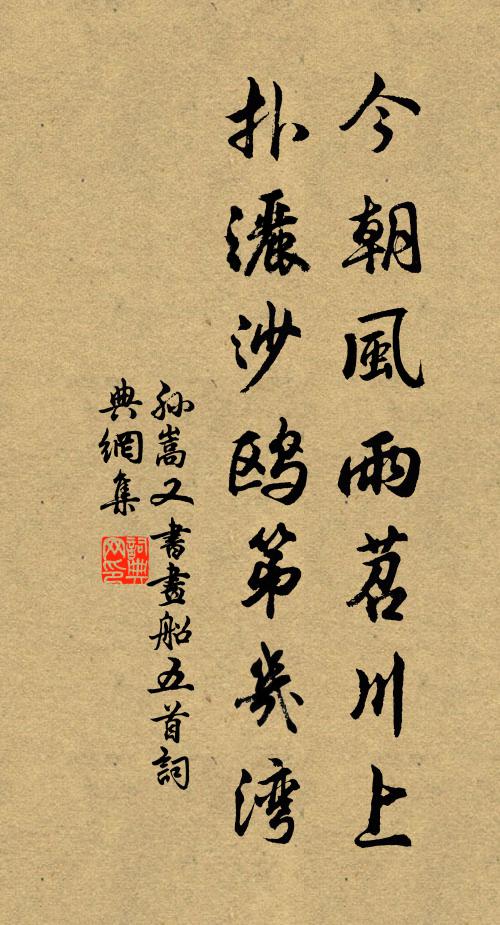 今朝風雨苕川上
扑灑沙鷗第幾湾
孙嵩又書畫船五首詞
典網集
詞典
网印